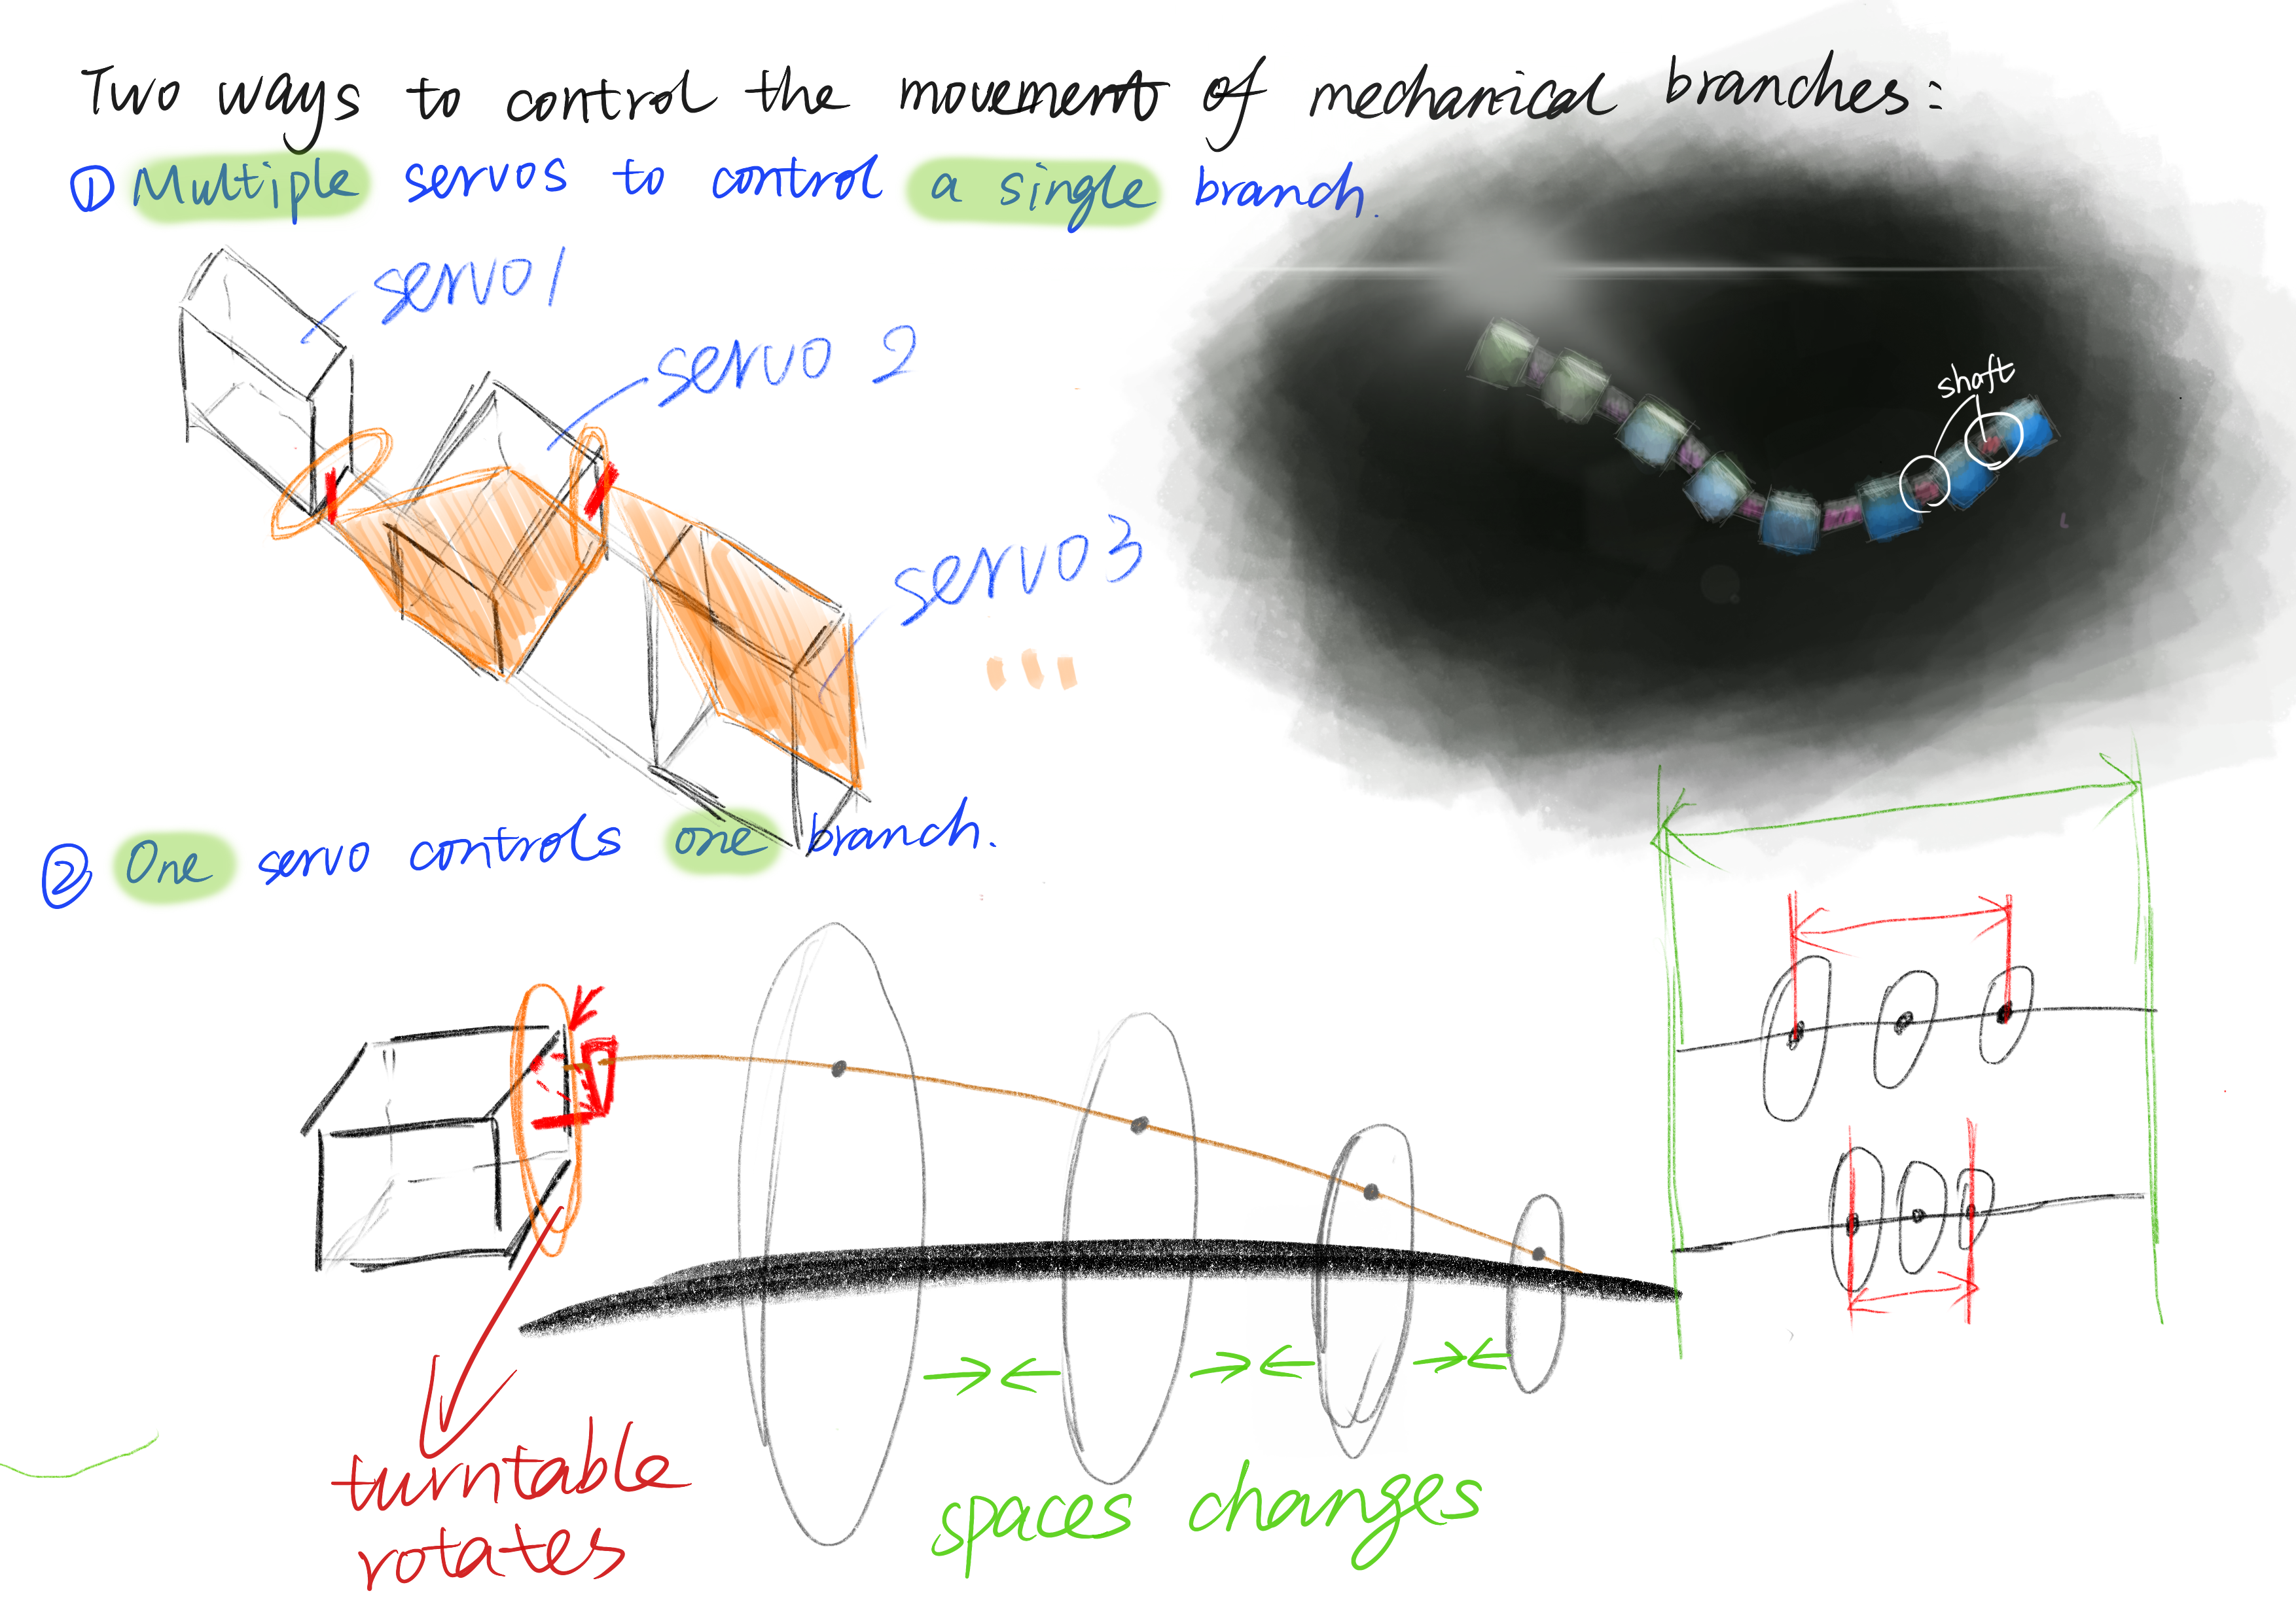 Two ways to control the movement of mechanical branches:
① Multiple servos to control a single branch.
servo1
servo 2
servo3
shaft
② One servo controls one branch.
turntable
rotates
spaces changes